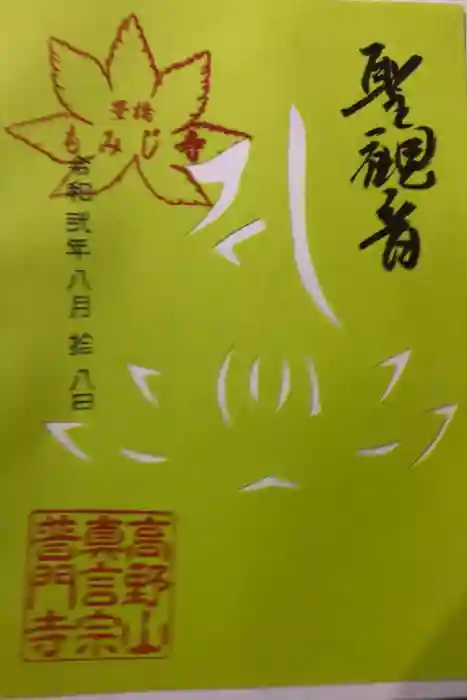 聖観音
豊橋
もみじ寺
令和弐年八月拾八日
高野山
真言宗
普門寺